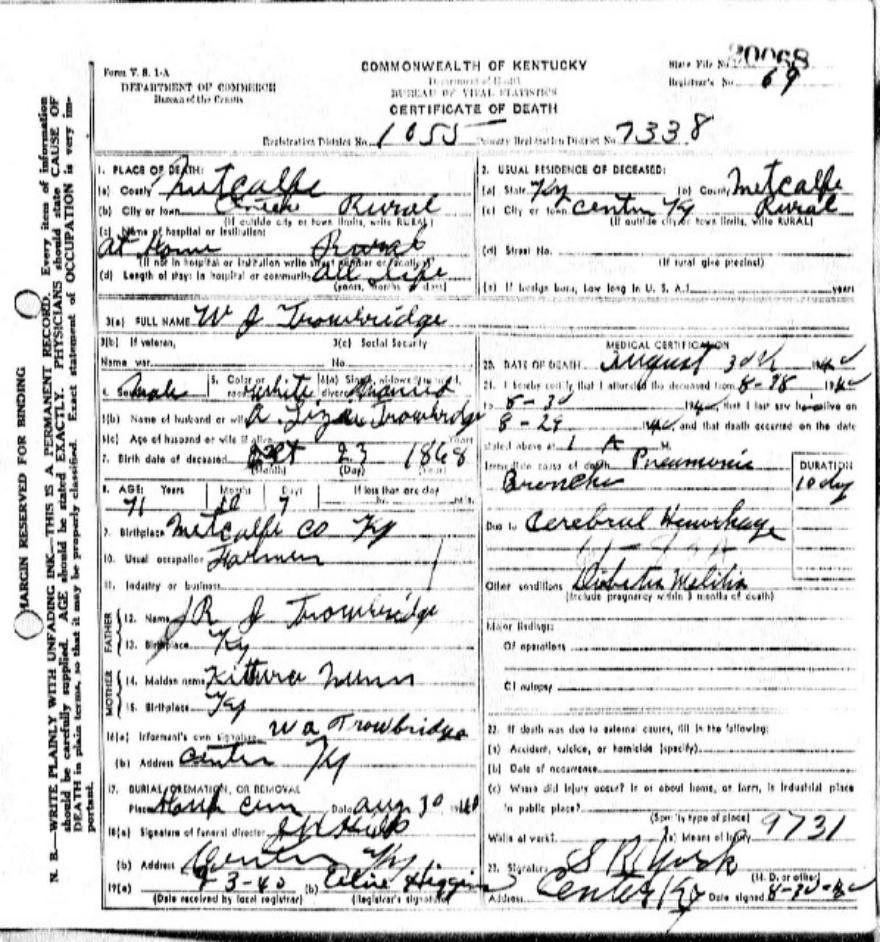 Form V. S. 1-A
DEPARTMENT OF COMMERCE
Bureau of the Census
COMMONWEALTH OF KENTUCKY
Department of Health
BUREAU OF VITAL STATISTICS
CERTIFICATE OF DEATH
State File No. 20068
Registrar's No. 69
Registration District No. 1055 Primary Registration District No. 7338
MARGIN RESERVED FOR BINDING
N. B.—WRITE PLAINLY WITH UNFADING INK—THIS IS A PERMANENT RECORD. Every item of information
should be carefully supplied. AGE should be stated EXACTLY. PHYSICIANS should state CAUSE OF
DEATH in plain terms, so that it may be properly classified. Exact statement of OCCUPATION is very im-
portant.
1. PLACE OF DEATH:
(a) County Metcalfe
(b) City or town Center Rural
(If outside city or town limits, write RURAL)
(c) Name of hospital or institution:
At Home Rural
(If not in hospital or institution write street number or location)
(d) Length of stay: In hospital or community All life
(years, months or days)
2. USUAL RESIDENCE OF DECEASED:
(a) State Ky (b) County Metcalfe
(c) City or town Center Ky Rural
(If outside city or town limits, write RURAL)
(d) Street No.
(If rural give precinct)
(e) If foreign born, how long in U. S. A.? years
3(a) FULL NAME W J Trowbridge
3(b) If veteran, 3(c) Social Security
Name war No.
4. Sex Male 5. Color or race White 6(a) Single, widowed, married, divorced Married
6(b) Name of husband or wife Trowbridge
6(c) Age of husband or wife if alive Years
7. Birth date of deceased Oct 23 1868
(Month) (Day) (Year)
8. AGE: Years Months Days If less than one day
71 10 7 hr. min.
9. Birthplace Metcalfe Co Ky
10. Usual occupation Farmer
11. Industry or business
FATHER
12. Name J R J Trowbridge
13. Birthplace Ky
MOTHER
14. Maiden name Kittura Nunn
15. Birthplace Ky
16(a) Informant's own signature W A Trowbridge
(b) Address Center Ky
17. BURIAL, CREMATION, OR REMOVAL
Place Cem Date Aug 30 1940
18(a) Signature of funeral director
(b) Address Center Ky
19(a) 9-3-40 (b) Alice Higgins
(Date received by local registrar) (Registrar's signature)
MEDICAL CERTIFICATION
20. DATE OF DEATH August 30th 1940
21. I hereby certify that I attended the deceased from 8-28 1940
to 8-30 1940, that I last saw he alive on
8-29 1940, and that death occurred on the date
stated above at 1 A M.
Immediate cause of death Pneumonia
Broncho
DURATION
10 day
Due to Cerebral Hemorhage
Other conditions Diabetis Melitis
(Include pregnancy within 3 months of death)
Major findings:
Of operations
Of autopsy
22. If death was due to external causes, fill in the following:
(a) Accident, suicide, or homicide (specify)
(b) Date of occurrence
(c) Where did injury occur? In or about home, on farm, in industrial place
in public place?
(Specify type of place)
While at work? (e) Means of injury 9731
23. Signature S R York
(M. D. or other)
Address Center Ky Date signed 8-30-40